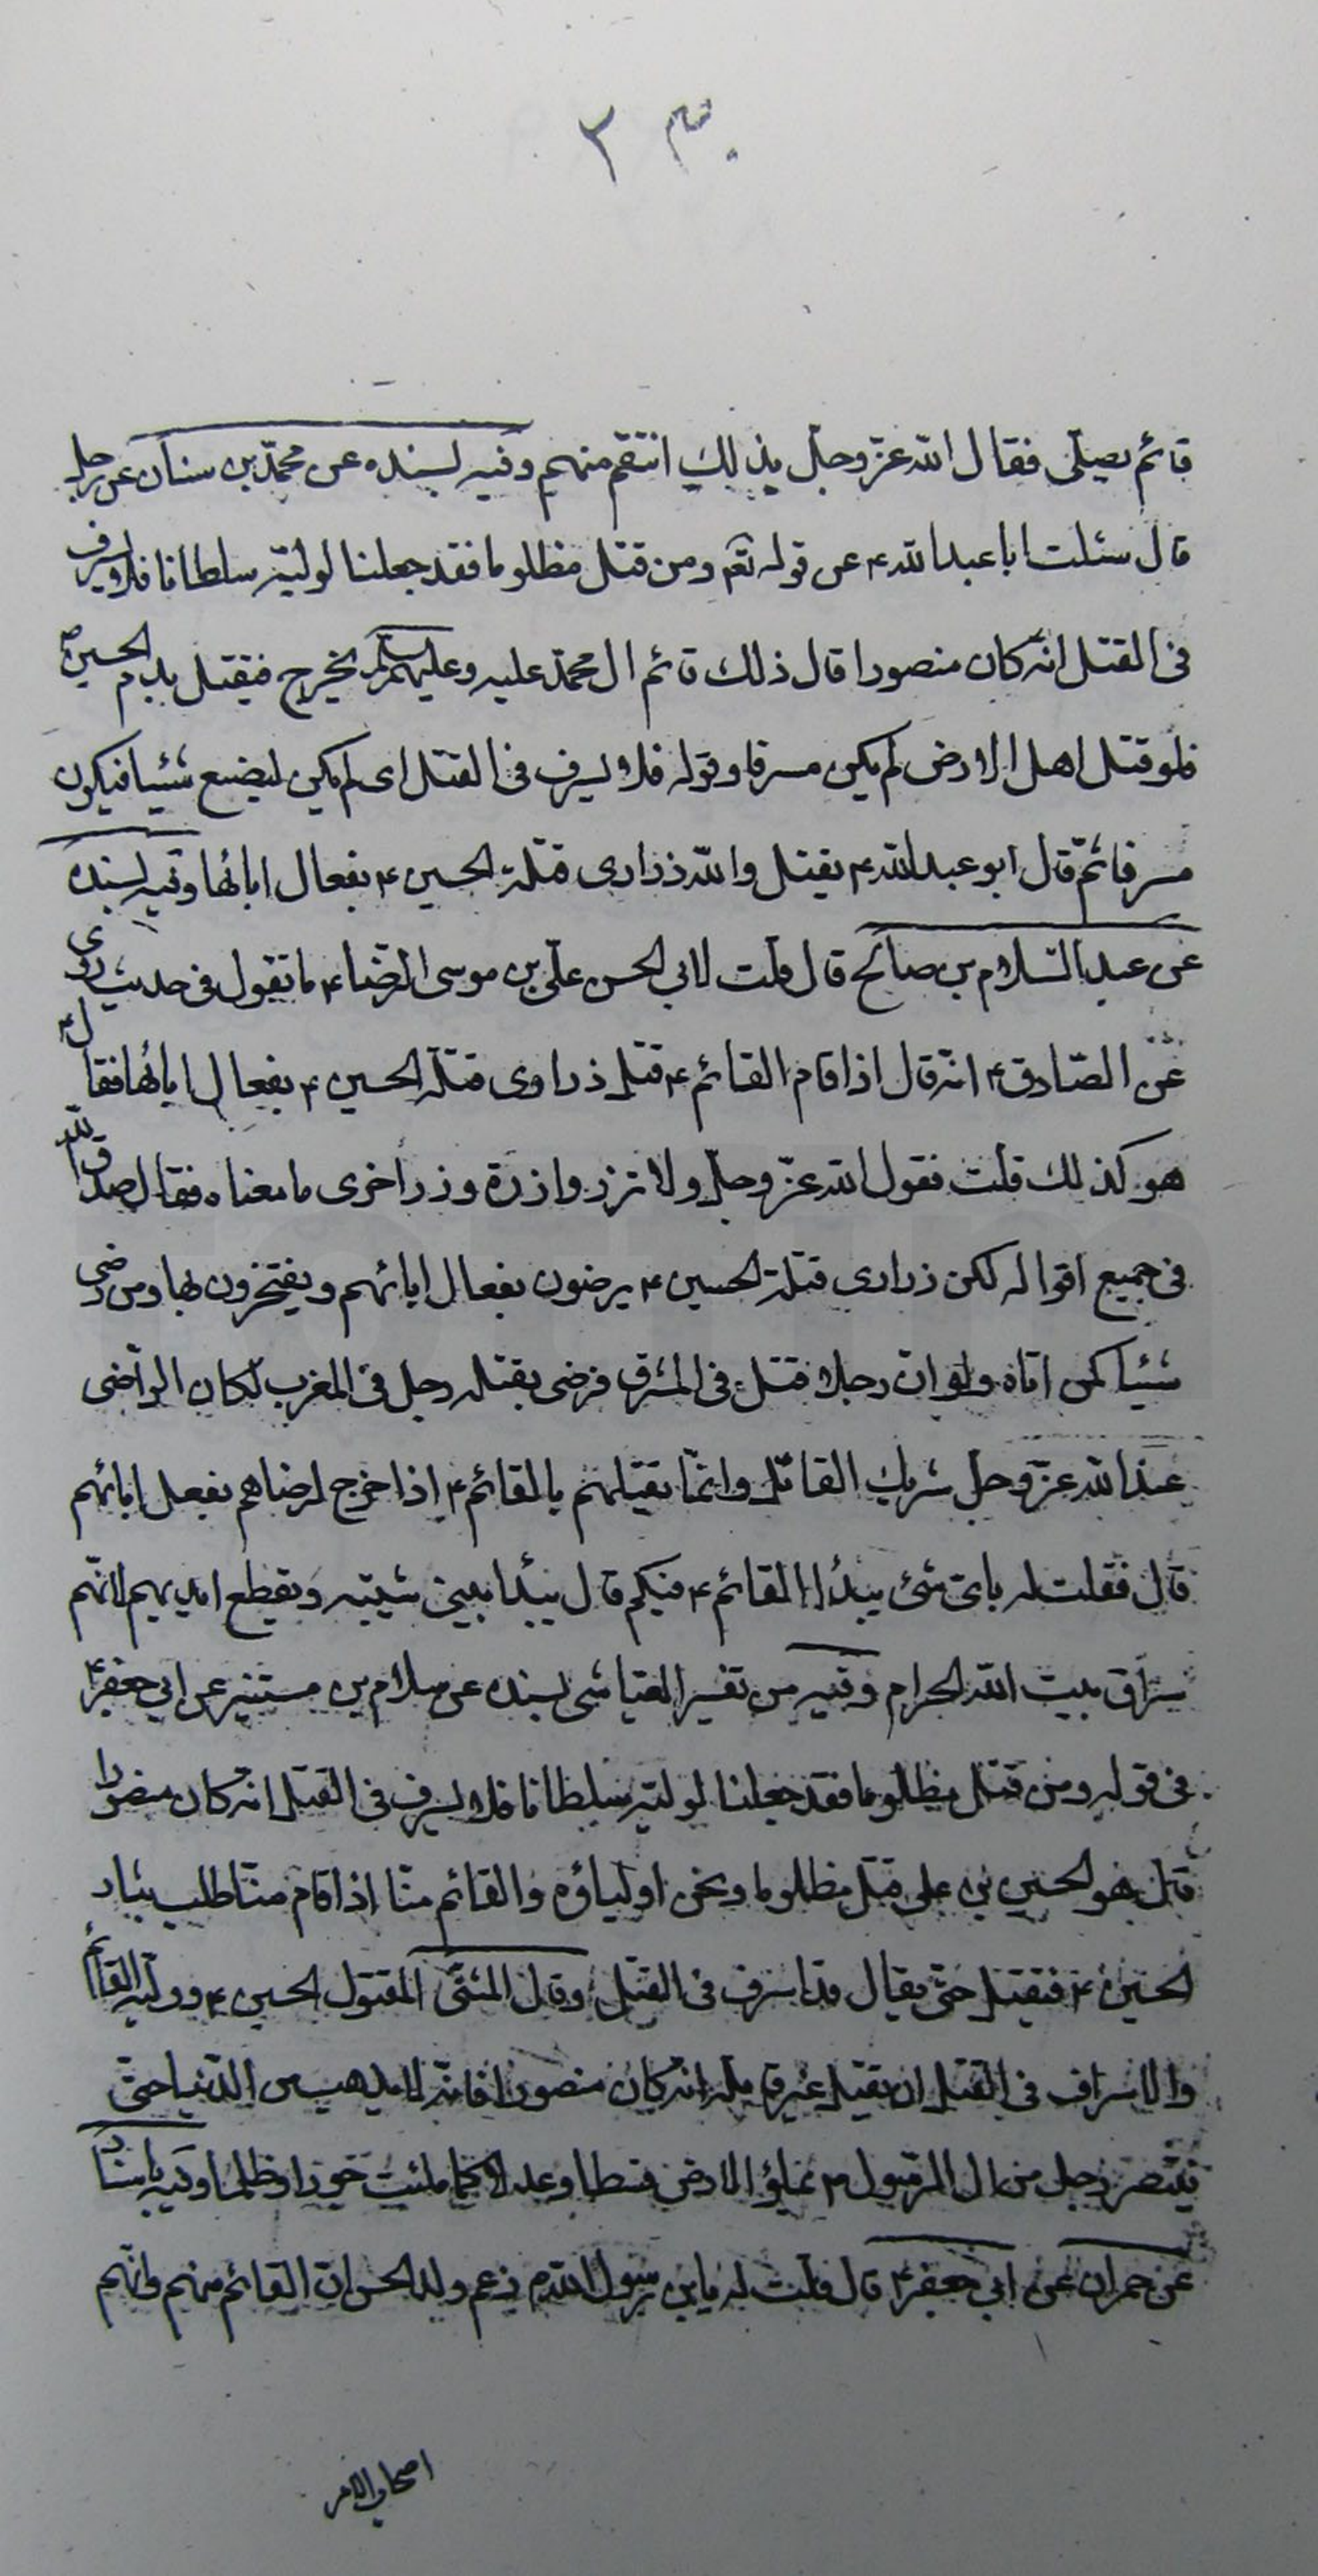 ٣
قائم يصلّى فقال الله عزّ وجلّ بذلك انتقم منهم وفيه بسنده عن محمّد بن سنان عن رجل
قال سئلت ابا عبدالله ع عن قوله تع ومن قتل مظلوما فقد جعلنا لوليّه سلطانا فلا يسرف
فى القتل انّه كان منصورا قال ذلك قائم ال محمّد عليه وعليهم السلم يخرج فيقتل بدم الحسين ع
فلو قتل اهل الارض لم يكن مسرفا وقوله فلا يسرف فى القتل اى لم يكن ليضع شيئا فيكون
مسرفا ثمّ قال ابو عبدالله ع يقتل والله ذرارى قتلة الحسين ع بفعال ابائها وفيه بسنده
عن عبد السّلام بن صالح قال قلت لابى الحسن علىّ بن موسى الرّضا ع ما تقول فى حديث روى
عن الصّادق ع انّه قال اذا قام القائم ع قتل ذرارى قتلة الحسين ع بفعال ابائها فقال ع
هو كذلك قلت فقول الله عزّ وجلّ ولا تزر وازرة وزر اخرى ما معناه فقال صدق الله
فى جميع اقواله لكن ذرارى قتلة الحسين ع يرضون بفعال ابائهم ويفتخرون بها ومن رضى
شيئا كمن اتاه ولو انّ رجلا قتل فى المشرق فرضى بقتله رجل فى المغرب لكان الرّاضى
عند الله عزّ وجلّ شريك القاتل وانّما يقتلهم بالقائم ع اذا خرج لرضاهم بفعل ابائهم
قال فقلت له باىّ شئ يبدأ القائم ع فيكم قال يبدأ ببنى شيبه ويقطع ايديهم لانّهم
سرّاق بيت الله الحرام وفيه من تفسير العيّاشى بسنده عن سلام بن مستنير عن ابى جعفر ع
فى قوله ومن قتل مظلوما فقد جعلنا لوليّه سلطانا فلا يسرف فى القتل انّه كان منصورا
قتل هو الحسين بن على قتل مظلوما ونحن اولياؤه والقائم منّا اذا قام منّا طلب بثار
الحسين ع فيقتل حتّى يقال قد اسرف فى القتل وقال المسّمى المقتول الحسين ع ووليّه القائم
والاسراف فى القتل ان يقتل غير قاتله انّه كان منصورا فانّه لا يذهب من الدّنيا حتّى
ينتصر رجل من ال الرّسول ص يملؤ الارض قسطا وعدلا كما ملئت جورا وظلما وفيه باسناد
عن حمران عن ابى جعفر ع قال قلت له يا بن رسول الله ص زعم ولد الحسن انّ القائم منهم وانّهم
اصحاب الامر